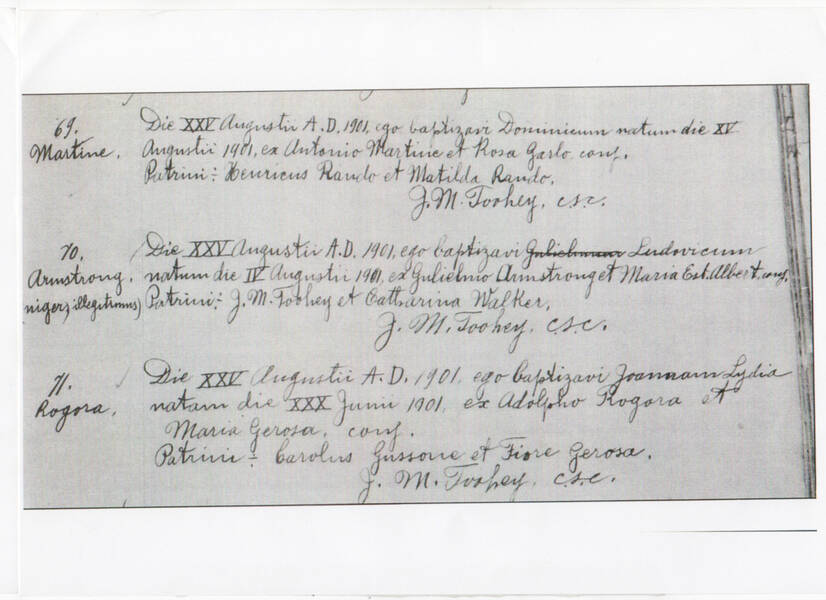 69.
Martine.
Die XXV Augustii A.D. 1901, ego baptizavi Dominicum natum die XV
Augustii 1901, ex Antonio Martine et Rosa Garlo conj.
Patrini:- Henricus Rando et Matilda Rando.
J. M. Toohey, c.s.c.
70.
Armstrong.
niger, illegitimus)
Die XXV Augustii A.D. 1901, ego baptizavi Gulielmum Ludovicum
natum die IV Augustii 1901, ex Gulielmo Armstrong et Maria Est. Albert, conj.
Patrini:- J. M. Toohey et Catharina Walker.
J. M. Toohey, c.s.c.
71.
Rogora.
Die XXV Augustii A.D. 1901, ego baptizavi Joannam Lydia
natam die XXX Junii 1901, ex Adolpho Rogora et
Maria Gerosa, conj.
Patrini:- Carolus Gussone et Fiore Gerosa.
J. M. Toohey, c.s.c.